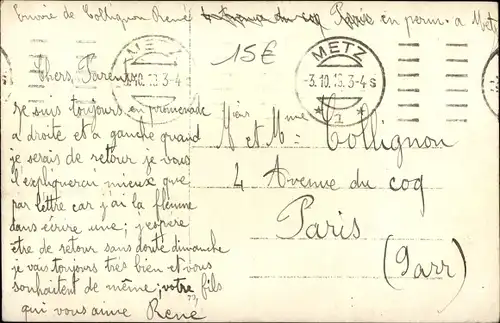 Envoie de Collignon René Paris en perm. a Metz
15€
METZ
-3.10.15.3-4 s
* 1 *
METZ
3.10.15.3-4
Chers Parents
Je suis toujours en promenade
a droite et a gauche quand
je serais de retour je vous
l'expliquerai mieux que
par lettre car j'ai la flemme
dans écrire une ; j'espère
être de retour sans doute dimanche
je vais toujours très bien et vous
souhaitent de même ; votre fils
qui vous aime René
M et Mme Collignon
4 Avenue du coq
Paris
(9arr)